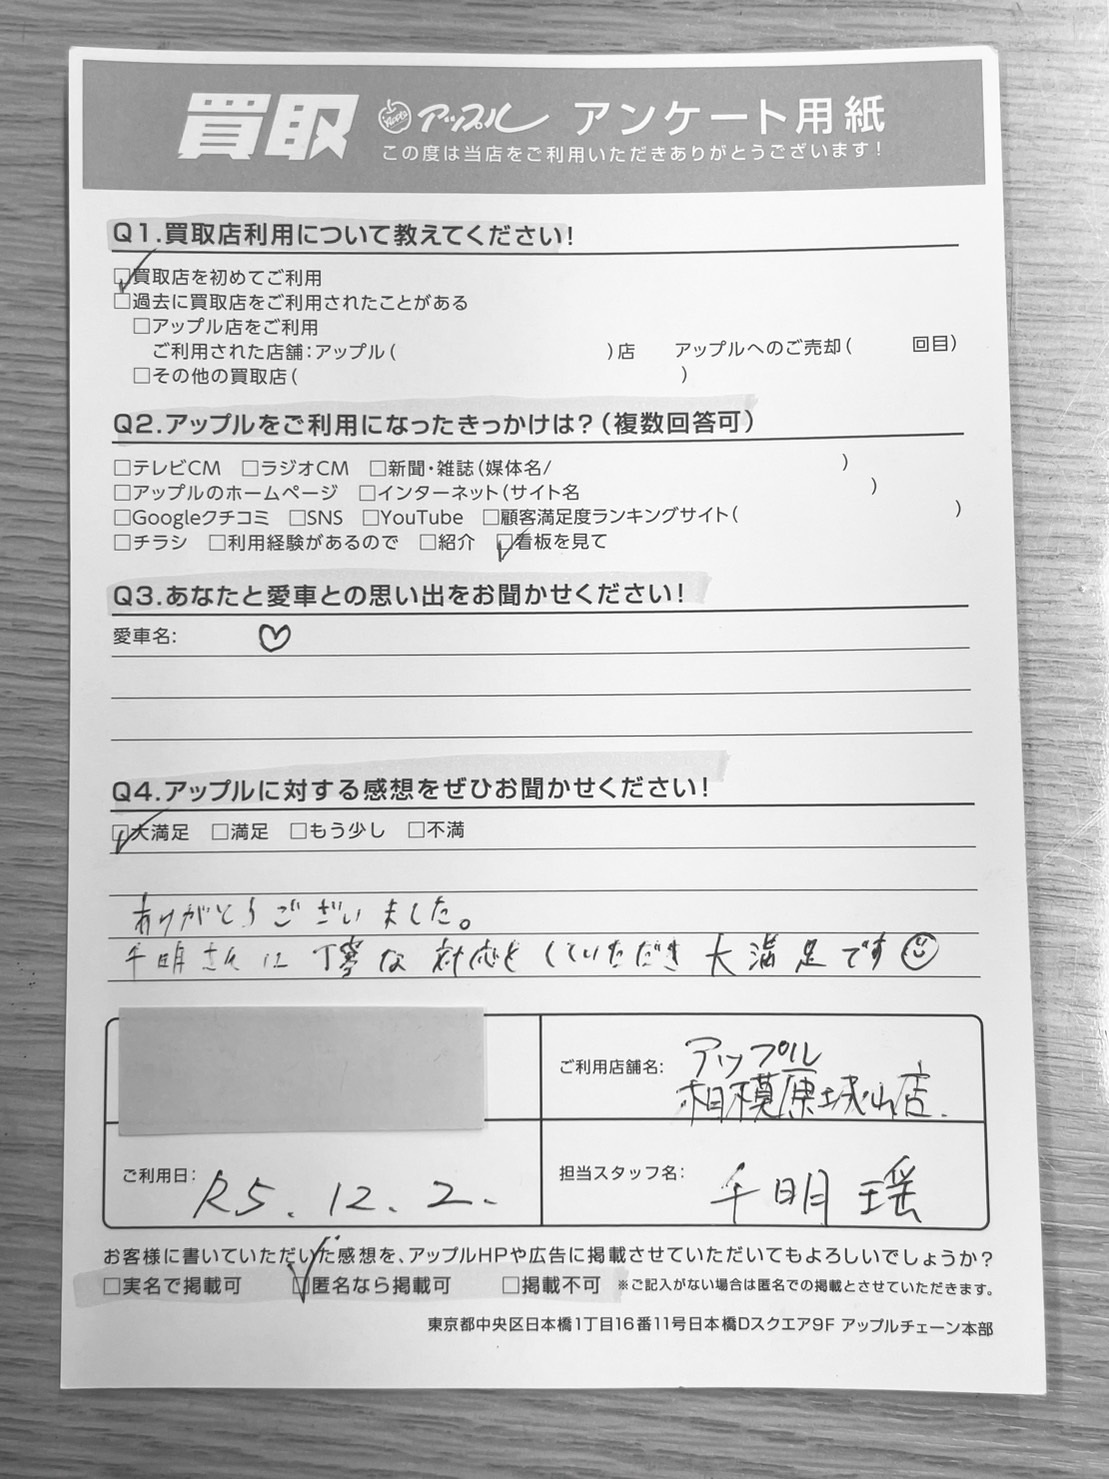 買取 Apple アップル アンケート用紙
この度は当店をご利用いただきありがとうございます！
Q1.買取店利用について教えてください！
□買取店を初めてご利用
□過去に買取店をご利用されたことがある
□アップル店をご利用
ご利用された店舗：アップル（　）店　アップルへのご売却（　回目）
□その他の買取店（　）
Q2.アップルをご利用になったきっかけは？（複数回答可）
□テレビCM □ラジオCM □新聞・雑誌（媒体名/　）
□アップルのホームページ □インターネット（サイト名　）
□Googleクチコミ □SNS □YouTube □顧客満足度ランキングサイト（　）
□チラシ □利用経験があるので □紹介 □看板を見て
Q3.あなたと愛車との思い出をお聞かせください！
愛車名: ♡
Q4.アップルに対する感想をぜひお聞かせください！
□大満足 □満足 □もう少し □不満
ありがとうございました。
千明さんに丁寧な対応をしていただき大満足です☺
ご利用店舗名: アップル
相模原城山店.
ご利用日: R5. 12. 2.
担当スタッフ名: 千明 瑶
お客様に書いていただいた感想を、アップルHPや広告に掲載させていただいてもよろしいでしょうか？
□実名で掲載可 □匿名なら掲載可 □掲載不可 ※ご記入がない場合は匿名での掲載とさせていただきます。
東京都中央区日本橋1丁目16番11号日本橋Dスクエア9F アップルチェーン本部